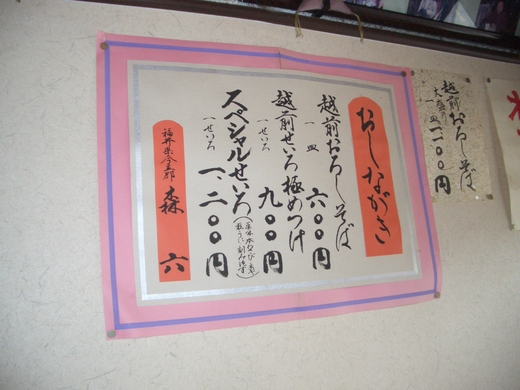 おしながき
越前おろしそば
一皿 六〇〇円
越前せいろ極めつけ
一せいろ 九〇〇円
スペシャルせいろ
一せいろ 一、二〇〇円
森六
越前おろしそば
大盛り
一皿
円